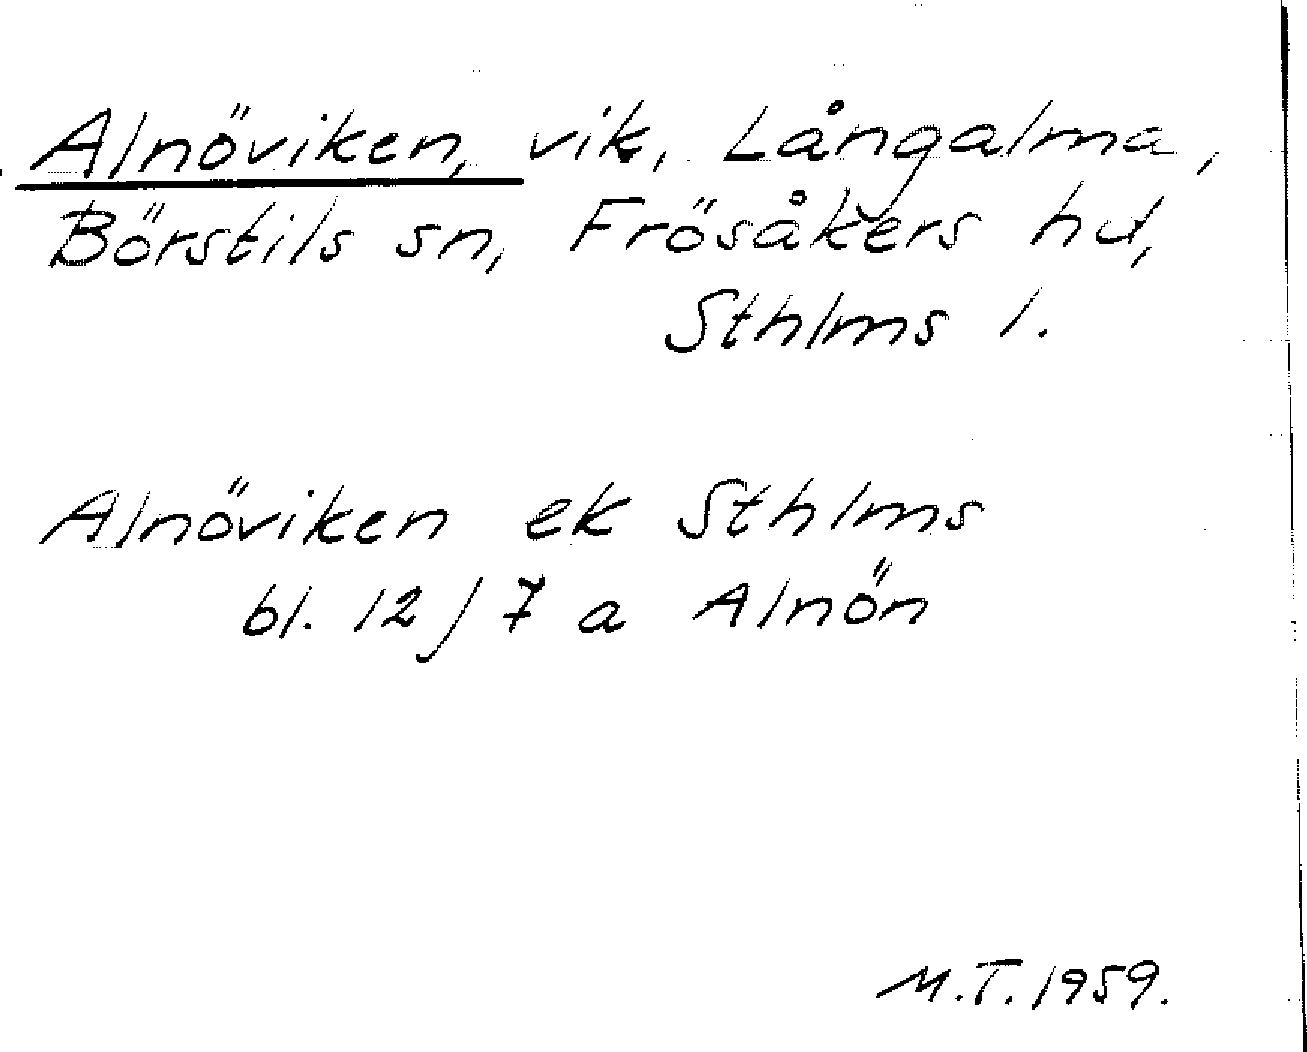 Alnöviken, vik, Långalma,
Börstils sn, Frösåkers hd,
Sthlms l.
Alnöviken ek Sthlms
bl. 12/7 a Alnön
M.T. 1959.